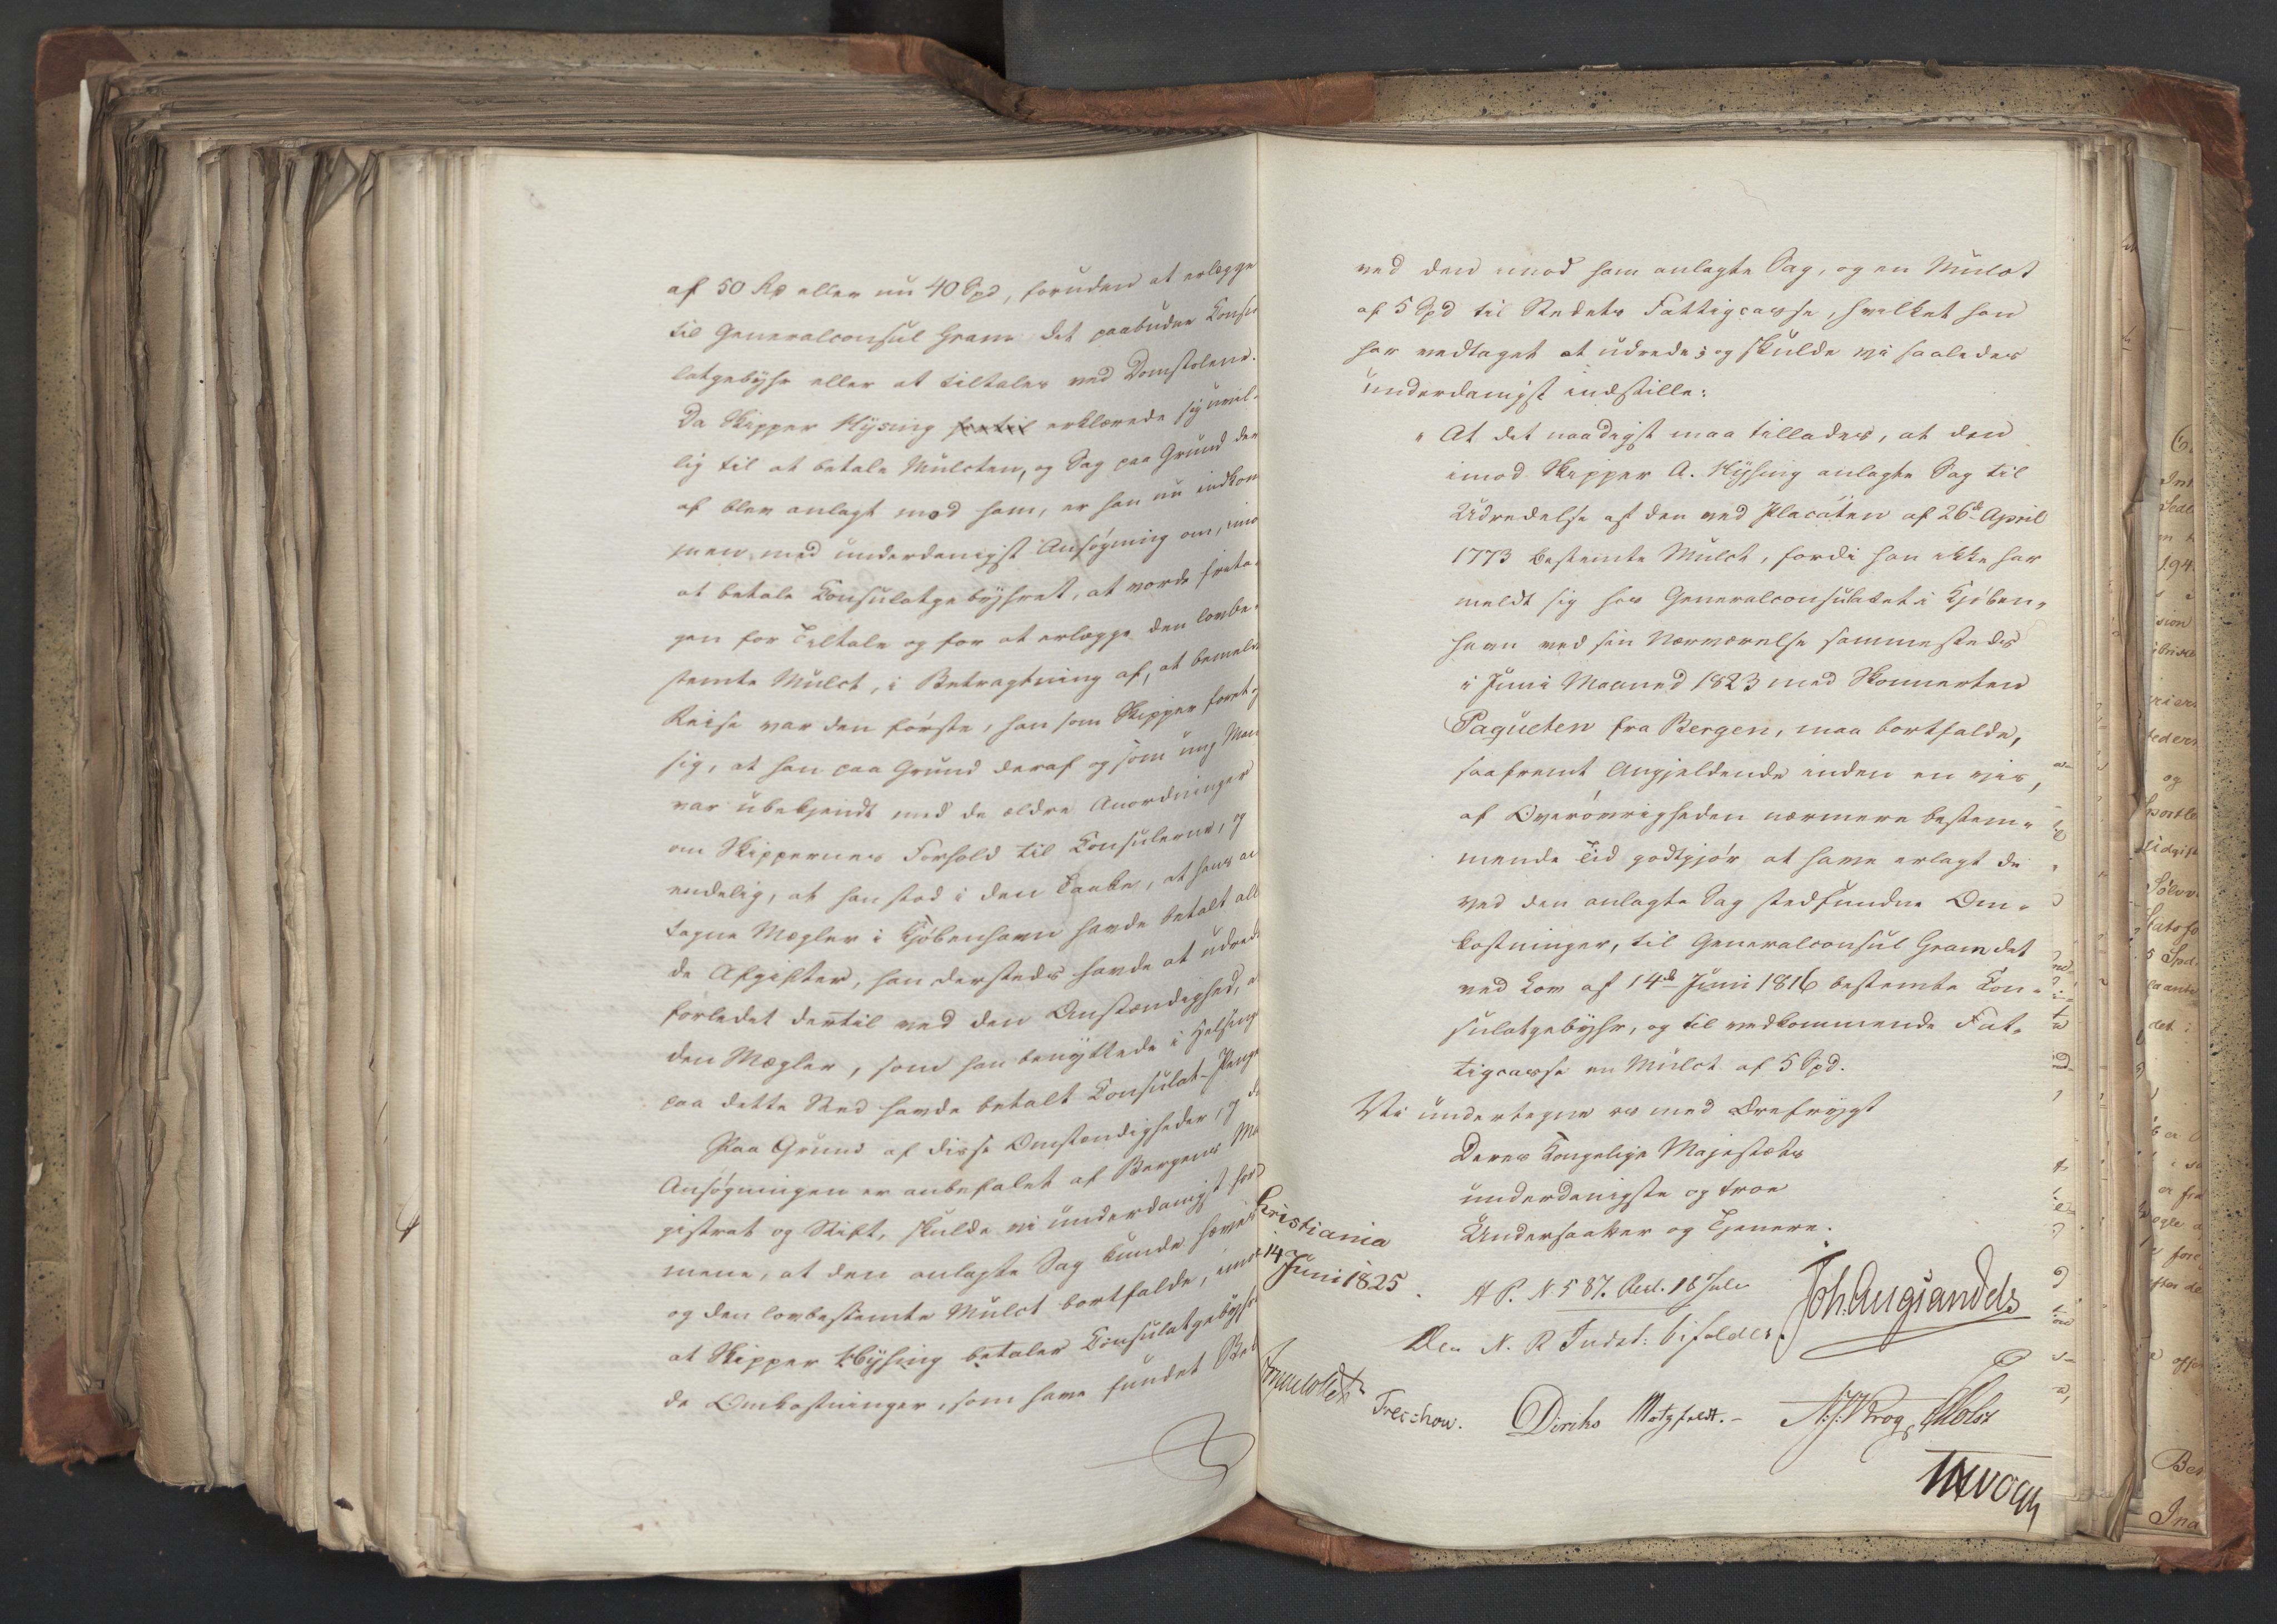 af 50 Rd eller nu 40 Spd, foruden at erlægge
til Generalconsul Gram det paabudne Consu
latgebyhr eller at tiltales ved Domstolene.
Da Skipper Hysing erklærede sig uvil-
lig til at betale Mulcten, og Sag paa Grund der
af blev anlagt mod ham, er han nu indkom
men med underdanigst Ansøgning om, imo
at betale Consulatgebyhret, at vorde frita-
gen for Tiltale og for at erlægge den lovbe-
stemte Mulct, i Betragtning af, at bemeldte
Reise var den første, han som Skipper foretog
sig, at han paa Grund deraf og som ung Man
var ubekjendt med de ældre Anordninger
om Skippernes Forhold til Consulerne, og
endelig, at han stod i den Tanke, at hans an
tagne Mægler i Kjøbenhavn havde betalt all
de Afgifter, han dersteds havde at udrede
forledet dertil ved den Omstændighed, a
den Mægler, som han benyttede i Helsing
paa dette Sted havde betalt Consulat-Penge
Paa Grund af disse Omstændigheder, og da
Ansøgningen er anbefalet af Bergens Ma
gistrat og Stift, skulde vi underdanigst for
mene, at den anlagte Sag kunde hæves
og den lovbestemte Mulct bortfalde, imod
at Skipper Hysing betaler Consulatgebyhr
de Omkostninger, som have fundet Sted
ved den imod ham anlagte Sag, og en Mulct
af 5 Spd til Stedets Fattigcasse, hvilket han
har vedtaget at udrede; og skulde vi saaledes
underdanigst indstille:
"At det naadigst maa tillades, at den
imod Skipper A. Hysing anlagte Sag til
Udredelse af den ved Placaten af 26de April
1773 bestemte Mulct, fordi han ikke har
meldt sig hos Generalconsulatet i Kjøben-
havn ved sin Nærværelse sammesteds
i Juni Maaned 1823 med Skonnerten
Paqueten fra Bergen, maa bortfalde,
saafremt Angjeldende inden en vis,
af Overøvrigheden nærmere bestem-
mende Tid godtgjør at have erlagt de
ved den anlagte Sag stedfundne Om-
kostninger, til Generalconsul Gram det
ved Lov af 14de Juni 1816 bestemte Con-
sulatgebyhr, og til vedkommende Fat-
tigcasse en Mulct af 5 Spd.
Vi undertegne os med Ærefrygt
Deres Kongelige Majestæts
underdanigste og troe
Undersaatter og Tjenere.
Christiania
14 Juni 1825.
A P. N 587. Res. 16 Juli
Den N. R Indst: bifaldes.
Joh. Aug Sandels
Treschow.
Diriks
Motzfeldt.-
Krog
Holst
Vogt